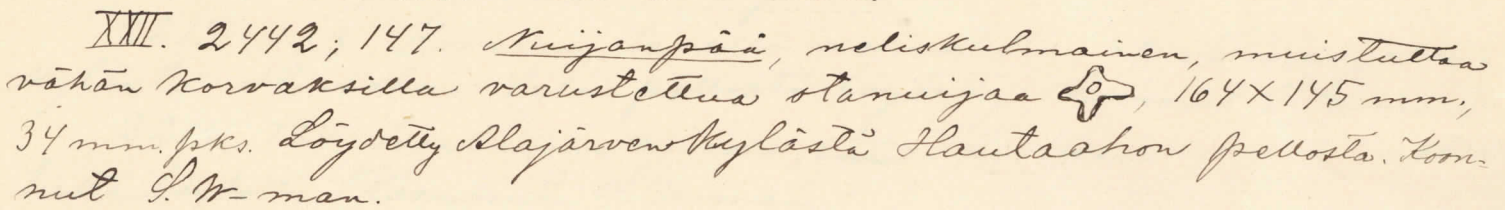 XXII. 2442; 147. Nuijanpää, neliskulmainen, muistuttaa
vähän korvaksilla varustettua otanuijaa, 164 X 145 mm.,
34 mm. pks. Löydetty Alajärven kylästä Hautaahon pellosta. Koon-
nut S. W-man.